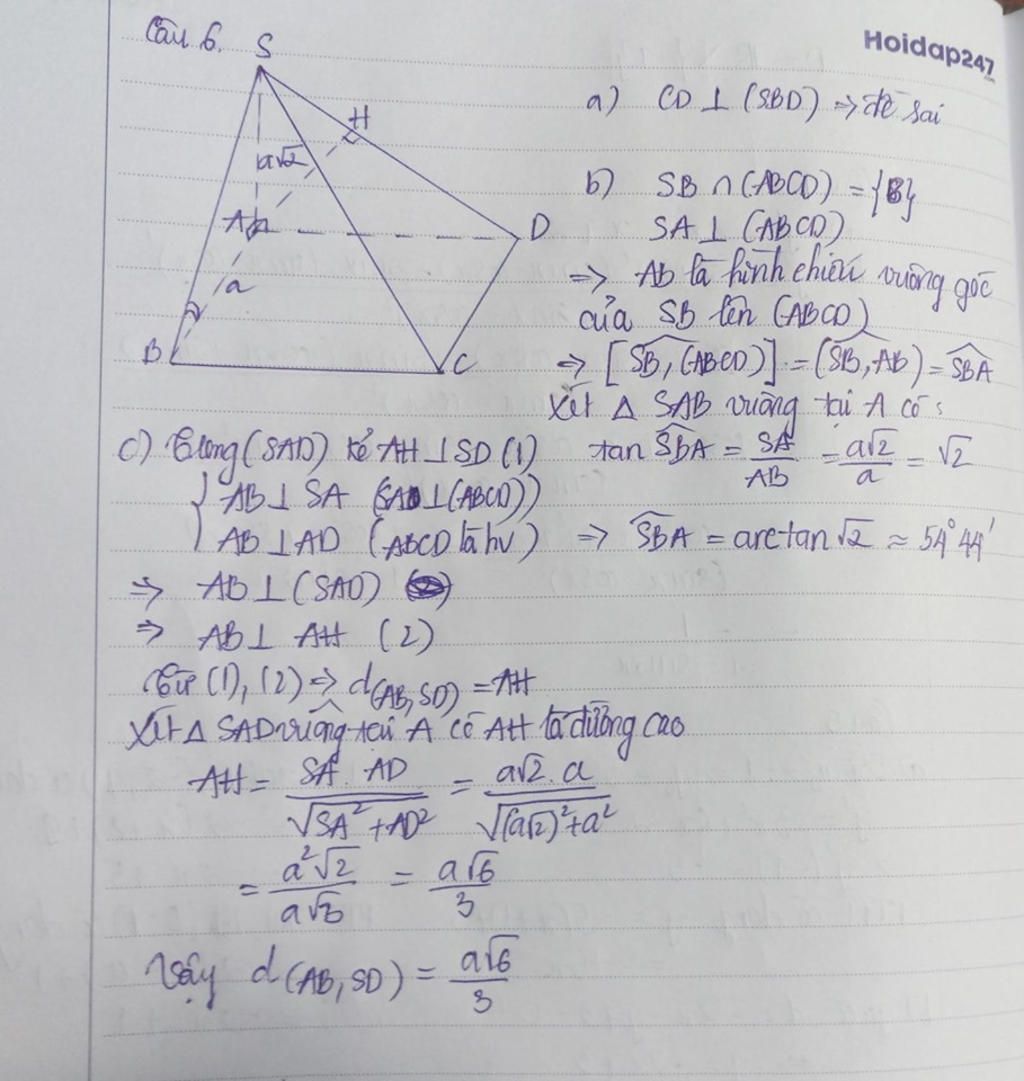 Câu 6.
Hoidap247
.com
S
H
a√2
A
D
a
B
C
a) CD ⊥ (SBD) => đề sai
b) SB ∩ (ABCD) = {B}
SA ⊥ (ABCD)
=> AB là hình chiếu vuông góc
của SB lên (ABCD)
=> [SB, (ABCD)] = (SB, AB) = SBA
Xét Δ SAB vuông tại A có:
tan SBA = SA/AB = a√2/a = √2
=> SBA = arctan √2 ≈ 54°44'
c) Trong (SAD) kẻ AH ⊥ SD (1)
{ AB ⊥ SA (SA ⊥ (ABCD))
AB ⊥ AD (ABCD là hv)
=> AB ⊥ (SAD)
=> AB ⊥ AH (2)
Từ (1), (2) => d(AB, SD) = AH
Xét Δ SAD vuông tại A có AH là đường cao
AH = SA . AD / √(SA² + AD²) = a√2 . a / √((a√2)² + a²)
= a²√2 / a√3 = a√6 / 3
Vậy d(AB, SD) = a√6 / 3